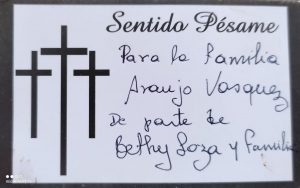 Sentido Pésame
Para la Familia
Araujo Vasquez
De parte de
Bethy Loza y Familia